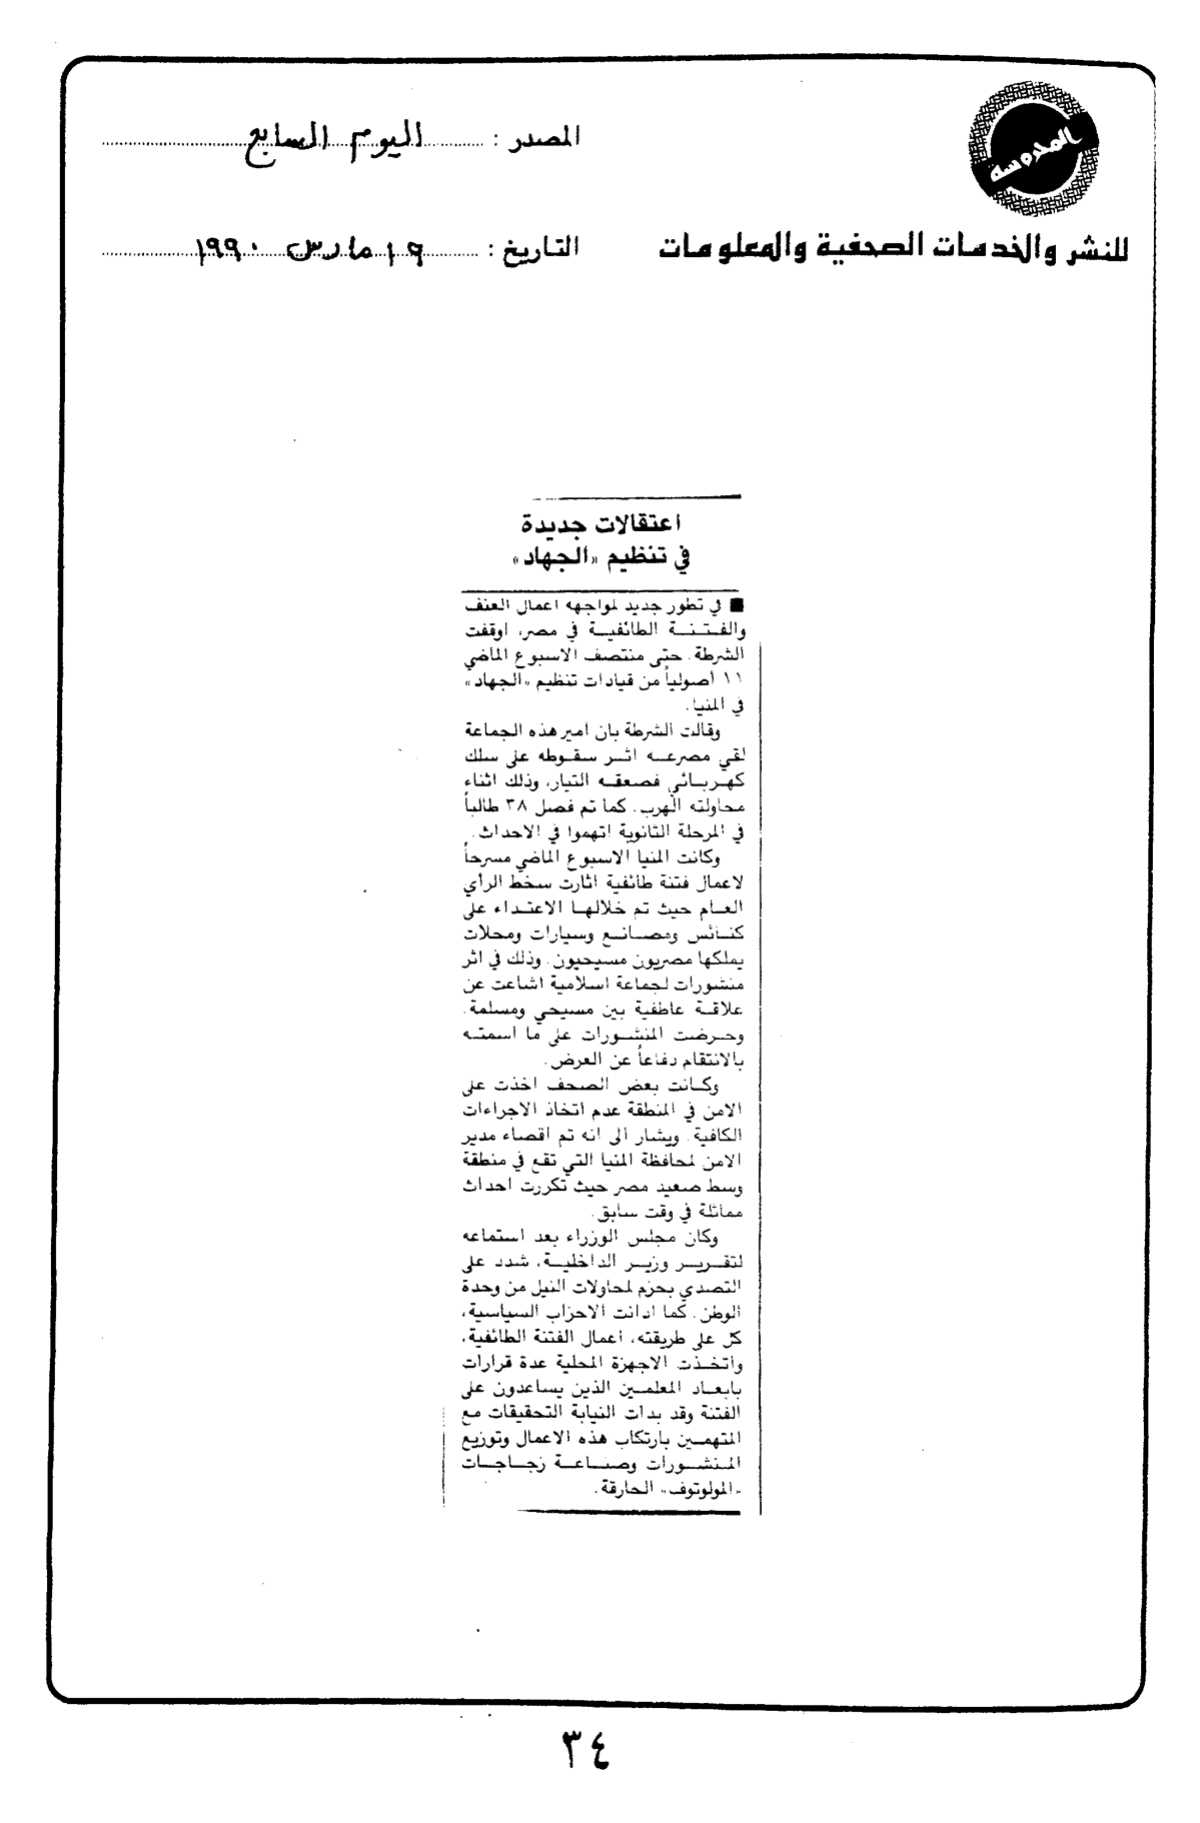 المحروسة
للنشر والخدمات الصحفية والمعلومات
المصدر : اليوم السابع
التاريخ : ١٩ مارس ١٩٩٠
اعتقالات جديدة
في تنظيم «الجهاد»
■ في تطور جديد لمواجهه اعمال العنف
والفتنة الطائفية في مصر، اوقفت
الشرطة. حتى منتصف الاسبوع الماضي
١١ أصولياً من قيادات تنظيم «الجهاد»
في المنيا.
وقالت الشرطة بان امير هذه الجماعة
لقي مصرعه اثر سقوطه على سلك
كهربائي فصعقه التيار، وذلك اثناء
محاولته الهرب. كما تم فصل ٣٨ طالباً
في المرحلة الثانوية اتهموا في الاحداث.
وكانت المنيا الاسبوع الماضي مسرحاً
لاعمال فتنة طائفية اثارت سخط الرأي
العام حيث تم خلالها الاعتداء على
كنائس ومصانع وسيارات ومحلات
يملكها مصريون مسيحيون. وذلك في اثر
منشورات لجماعة اسلامية اشاعت عن
علاقة عاطفية بين مسيحي ومسلمة.
وحرضت المنشورات على ما اسمته
بالانتقام دفاعاً عن العرض.
وكانت بعض الصحف اخذت على
الامن في المنطقة عدم اتخاذ الاجراءات
الكافية. ويشار الى انه تم اقصاء مدير
الامن لمحافظة المنيا التي تقع في منطقة
وسط صعيد مصر حيث تكررت احداث
مماثلة في وقت سابق.
وكان مجلس الوزراء بعد استماعه
لتقرير وزير الداخلية، شدد على
التصدي بحزم لمحاولات النيل من وحدة
الوطن. كما ادانت الاحزاب السياسية،
كل على طريقته، اعمال الفتنة الطائفية،
واتخذت الاجهزة المحلية عدة قرارات
بابعاد المعلمين الذين يساعدون على
الفتنة وقد بدات النيابة التحقيقات مع
المتهمين بارتكاب هذه الاعمال وتوزيع
المنشورات وصناعة زجاجات
«المولوتوف» الحارقة.
٣٤